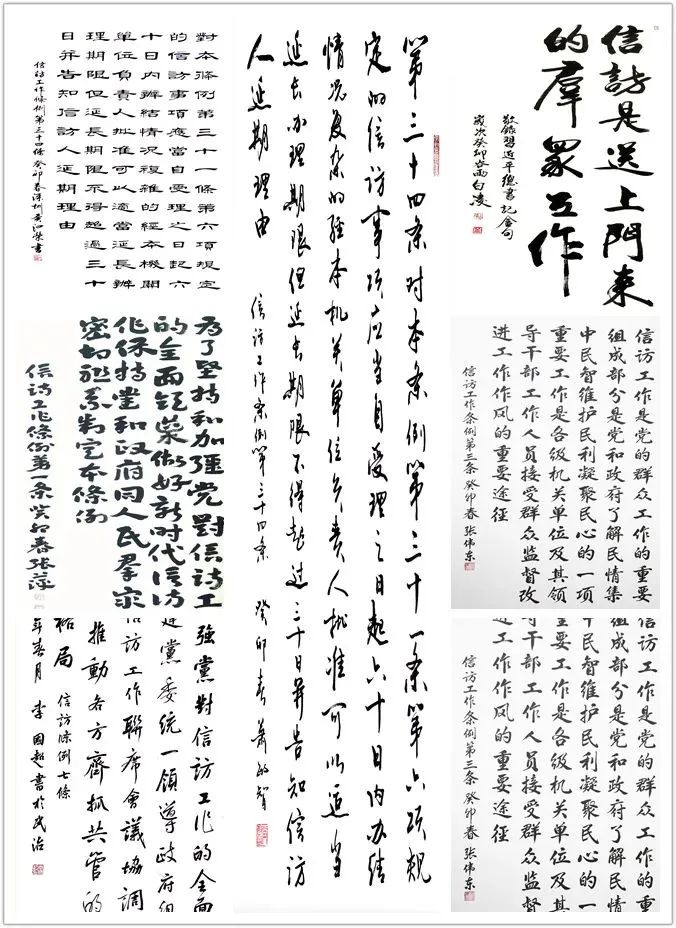 信訪是送上門來
的羣眾工作
敬錄習近平總書記金句
歲次癸卯谷雨白凌
信访工作是党的群众工作的重要
组成部分是党和政府了解民情集
中民智维护民利凝聚民心的一项
重要工作是各级机关单位及其领
导干部工作人员接受群众监督改
进工作作风的重要途径
信访工作条例第三条 癸卯春 张伟东
信访工作是党的群众工作的重
组成部分是党和政府了解民情
中民智维护民利凝聚民心的一
重要工作是各级机关单位及其
导干部工作人员接受群众监督
进工作作风的重要途径
信访工作条例第三条 癸卯春 张伟东
第三十四条对本条例第三十一条第六项规
定的信访事项应当自受理之日起六十日内办结
情况复杂的经本机关单位负责人批准可以适当
延长办理期限但延长期限不得超过三十日并告知信访
人延期理由
信访工作条例第三十四条 癸卯春
對本條例第三十一條第六項規定
的信訪事項應當自受理之日起六
十日内辦結情況複雜的經本機關
單位負責人批准可以適當延長辦
理期限但延長期限不得超過三十
日并告知信訪人延期理由
信訪工作條例第三十四條 癸卯春深圳黄泗榮書
为了堅持和加强党對信訪工
的全面领導做好新时代信访
作保持党和政府同人民羣眾
密切联系制定本條例
信訪工作條例第一條癸卯春张萍
強黨對信訪工作的全面
建黨委統一領導政府組
信訪工作聯席會議協調
推動各方齊抓共管的
格局
信訪條例七條
年春月 李國超書於武治